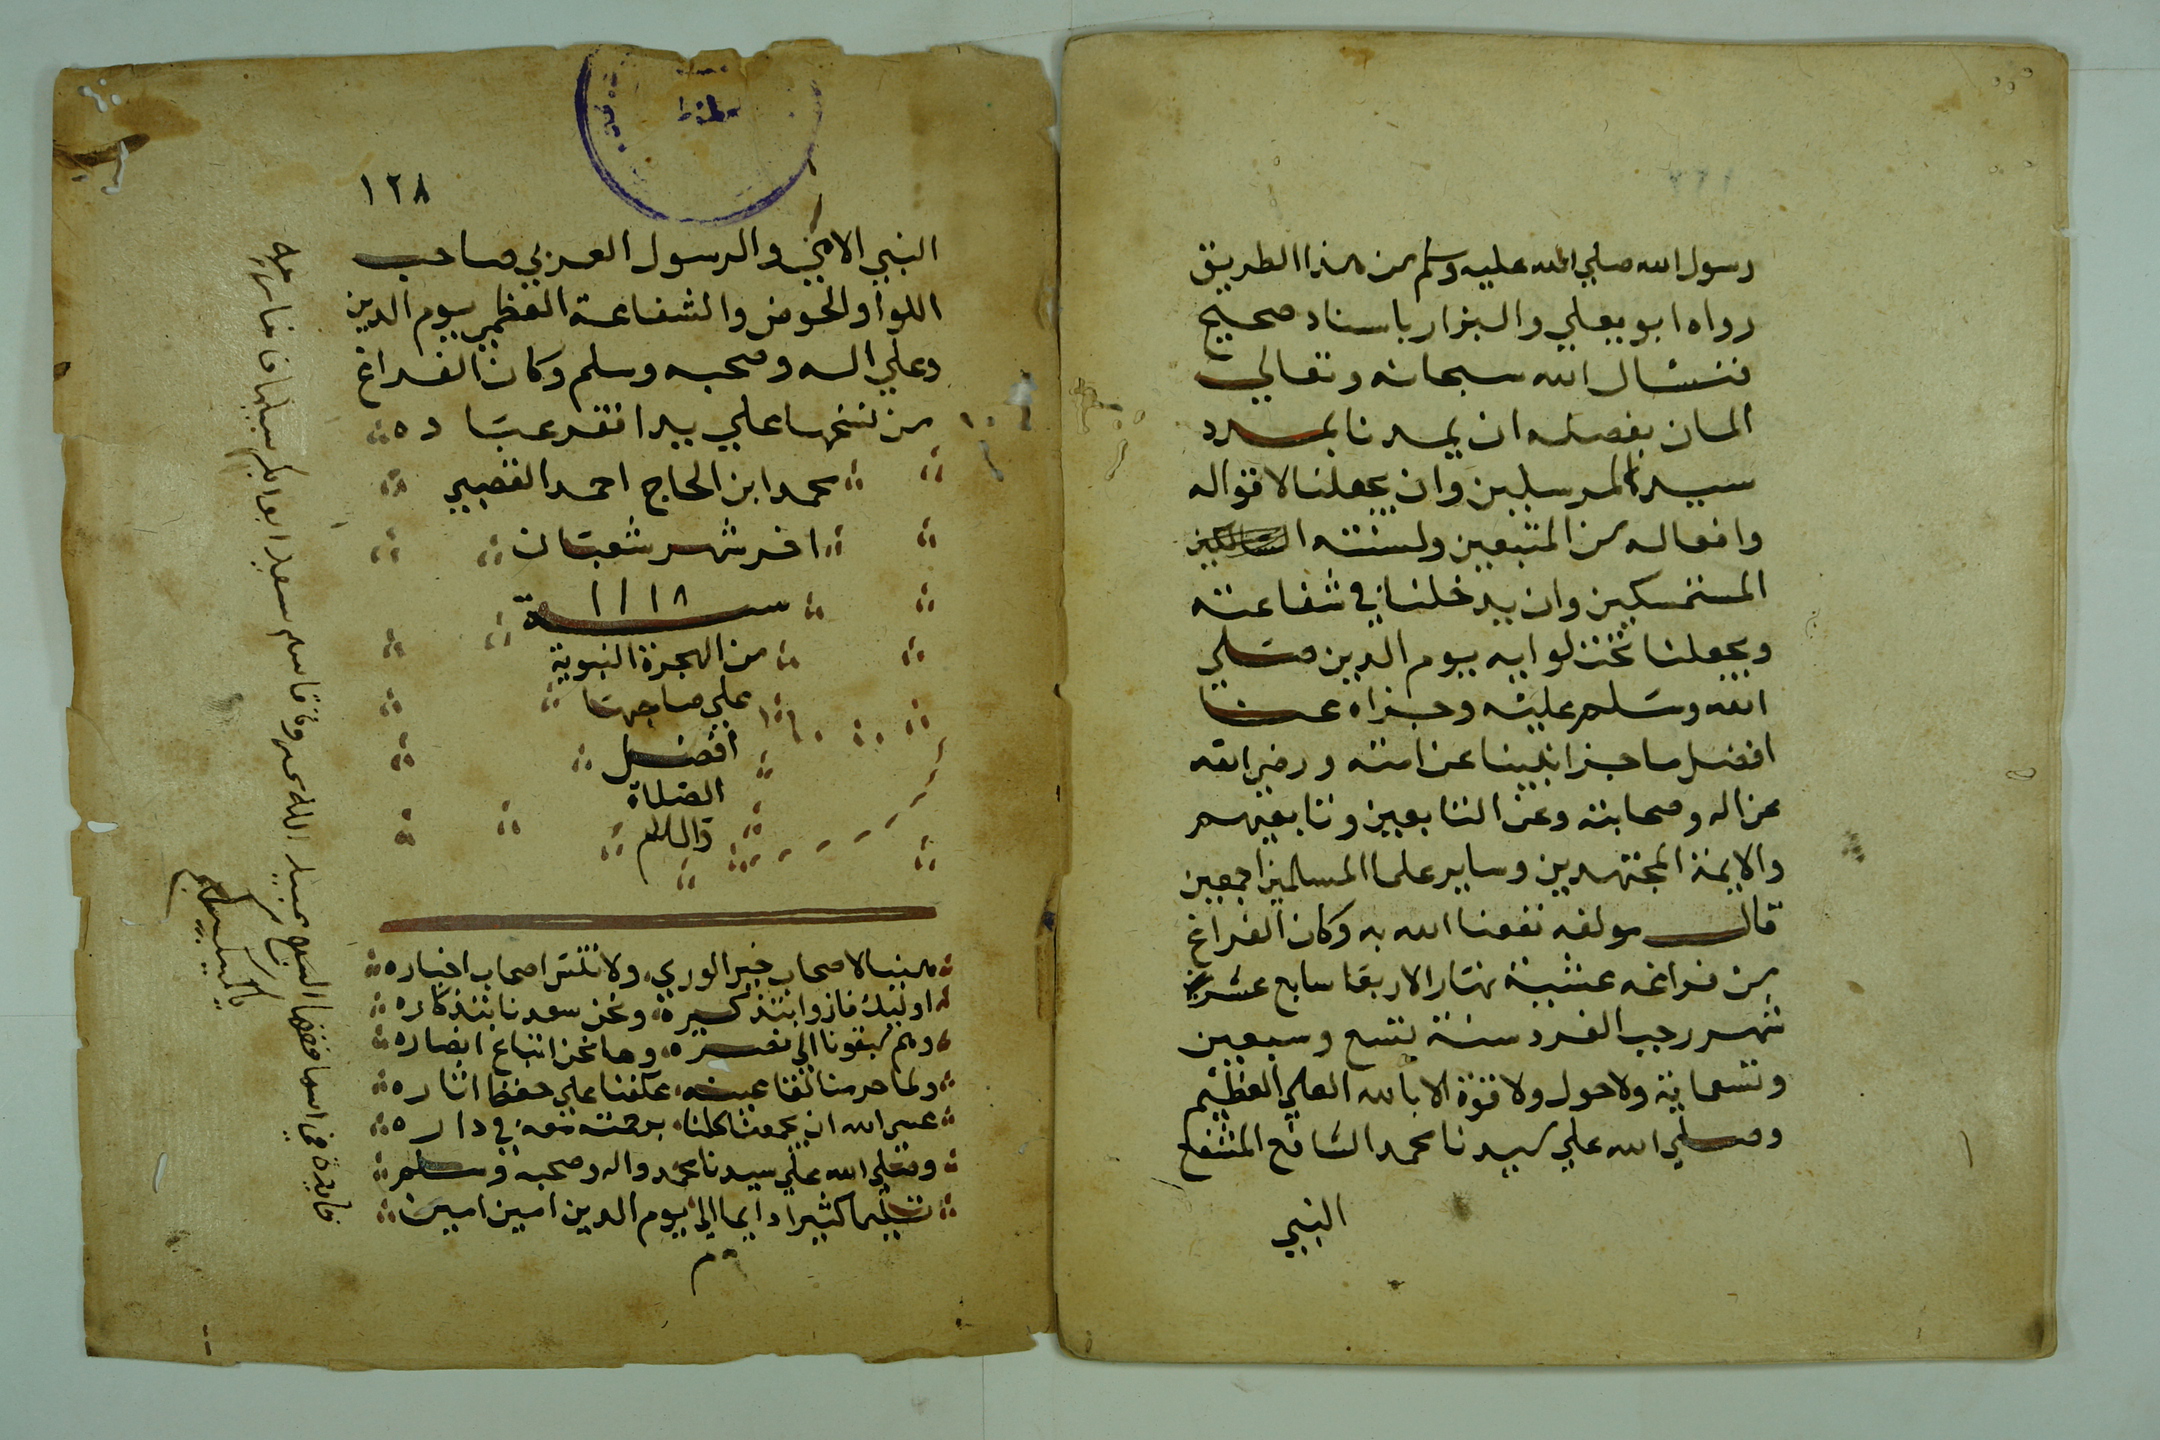 رسول الله صلي الله عليه وسلم من هذا الطريق
رواه ابو يعلي والبزار باسناد صحيح
فنسال الله سبحانه وتعالي
المان بفضله ان يمدنا بمدد
سيد المرسلين وان يجعلنا لاقواله
وافعاله من المتبعين ولسنته
المستمسكين وان يدخلنا في شفاعته
ويجعلنا تحت لوايه يوم الدين صلي
الله وسلم عليه وجزاه عنا
افضل ما جزا نبينا عن امته ورضي الله
عن اله وصحابته وعن التابعين وتابعيهم
والايمة المجتهدين وساير علما المسلمين اجمعين
قال مولفه نفعنا الله به وكان الفراغ
من فراغه عشية نهار الاربعا سابع عشر
شهر رجب الفرد سنة تسع وسبعين
وتسعماية ولا حول ولا قوة الا بالله العلي العظيم
وصلي الله علي سيدنا محمد الشافع المشفع
النبي
١٢٨
النبي الامي والرسول العربي صاحب
اللوا والحوض والشفاعة العظمي يوم الدين
وعلي اله وصحبه وسلم وكان الفراغ
من نسخها علي يد افقر عباده
محمد ابن الحاج احمد القصبي
اخر شهر شعبان
سنة ١١١٨
من الهجرة النبوية
علي صاحبها
افضل
الصلاة
والسلام
هنيا لاصحاب خير الوري ولا تنس اصحاب اخباره
اوليك فازوا بتذكيره ونحن سعدنا بتذكاره
وهم سبقونا الي نصره وها نحن اتباع انصاره
ولما حرمنا لقا عينه عكفنا علي حفظ اثاره
عسي الله ان يجمعنا كلنا برحمته معه في داره
وصلي الله علي سيدنا محمد واله وصحبه وسلم
تسليما كثيرا دايما الي يوم الدين امين امين
م
فايدة في اسما فقها السبع عبيد الله عروة قاسم سعيد ابو بكر سليمان خارجة